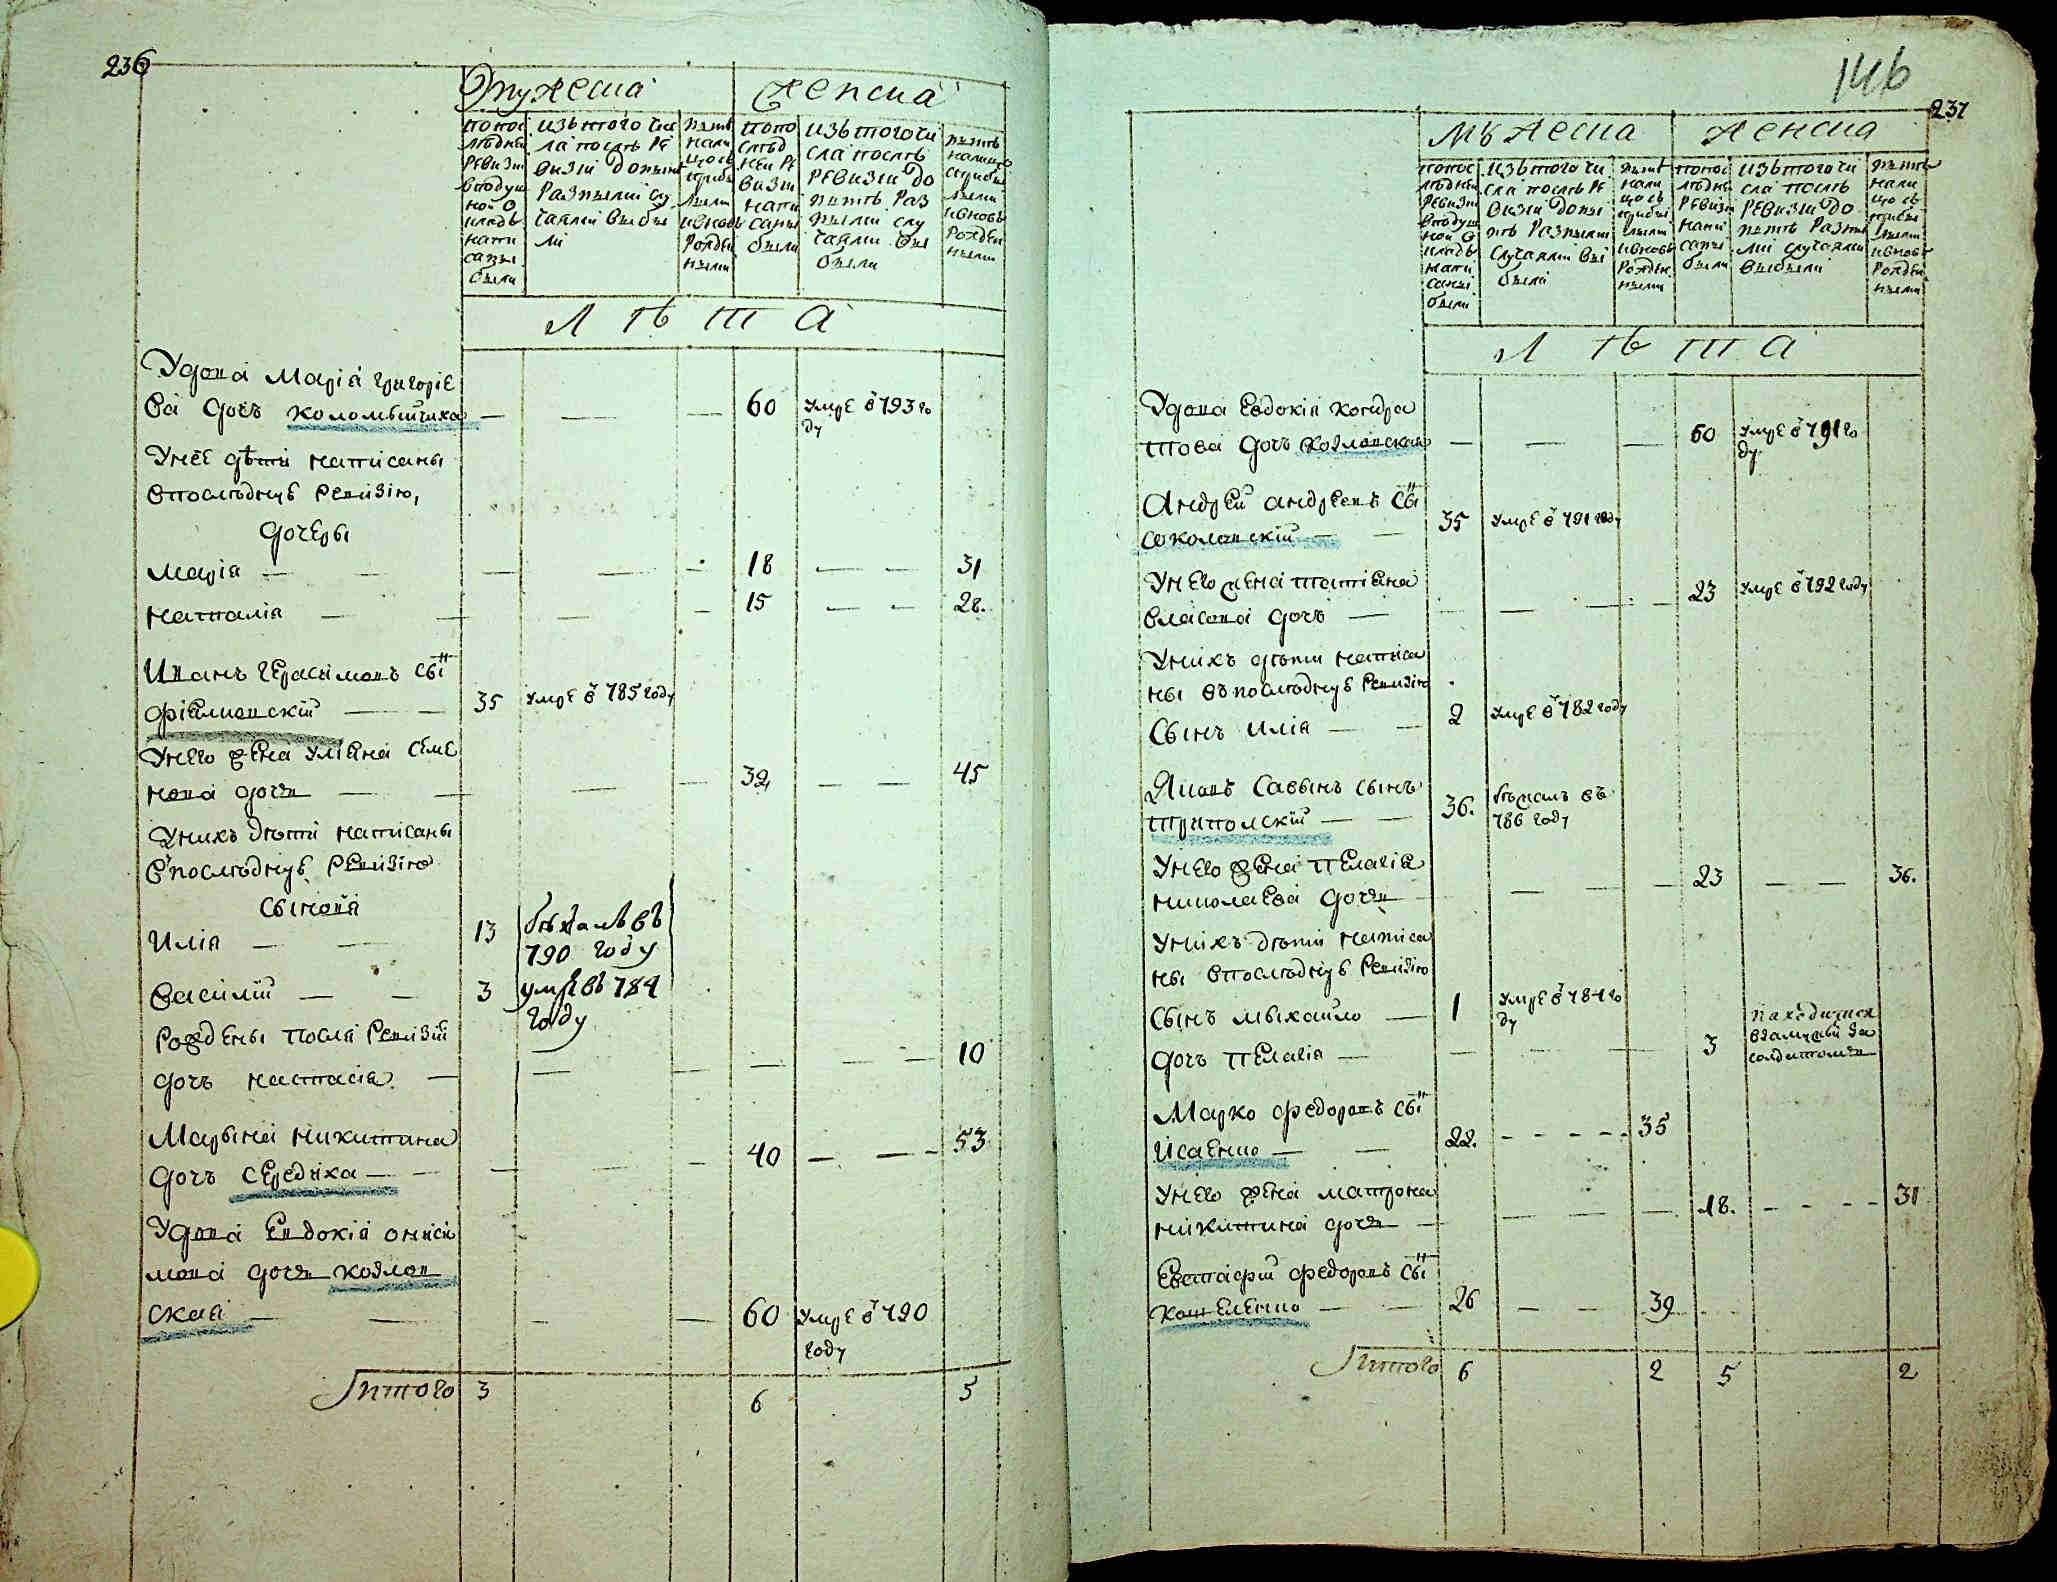 236
Мужеска Женска
попос
лѣдней
ревизіи
вподуш
ной о
кладъ
напи
саны
были
изътого чи
ла послѣ ре
визіи доныне
разными слу
чаями выбы
ли
ныне
нали
цо съ
прибы
лыми
ивновь
рожден
ными
попо
слѣд
ней ре
визіи
напи
саны
были
изътогочи
сла послѣ
ревизіи до
нынѣ раз
ными слу
чаями вы
были
нынѣ
налицо
сприбы
лыми
ивновь
рожден
ными
Л Ѣ Т А
Удова Марія григоріе
ва дочъ коломыйчиха — — — 60 умре в 793 го
ду
Унее дѣти написаны
впослѣднуѣ ревизію,
дочеры
Марія — — — 18 — — 31
Наталія — — — 15 — — 28.
Иванъ Герасимовъ сынъ
фіялковскій — — 35 умре в 785 году
Унего жена Уліяна семе
нова дочь — — — 32 — — 45
Унихъ дѣти написаны
впослѣднуѣ ревизію
Сыновя
Илія — 13 бѣжалъ въ
790 году
Василій — — 3 умре въ 784
году
Рождены посля ревизіи
дочъ настасія — — — — — — 10
Марына никитина
дочъ Середиха — — — — — 40 — — 53
Удова Евдокія Ониси
мова дочь козлов
ская — — — — 60 умре в 790
году
Итого 3 6 5
146
237
Мужеска Женска
попос
лѣдней
ревизіи
вподуш
ной о
кладъ
напи
саны
были
изътого чи
сла послѣ ре
визіи доны
нѣ разными
случаями вы
были
нынѣ
нали
цо съ
прибы
лыми
ивновь
рожден
ными
попос
лѣдней
ревизіи
напи
саны
были
изътого чи
сла послѣ
ревизіи до
нынѣ разны
ми случаями
выбыли
нынѣ
нали
цо съ
прибы
лыми
ивновь
рожден
ными
Л Ѣ Т А
Удова Евдокія кондра
това дочъ козловская — — — 60 умре в 791 го
ду
Андрей андреевъ сынъ
соколовскій — — 35 умре в 791 году
Унего жена татіяна
власова дочъ — — — — 23 умре в 792 году
Унихъ дѣти написа
ны въпослѣднуѣ ревизію
Сынъ илія — — 2 умре в 782 году
Яковъ Савынъ сынъ
трипольскій — — 36. бѣжалъ въ
786 году
Унего жена пелагія
николаева дочь — — — 23 — — 36.
Унихъ дѣти написа
ны впослѣднуѣ ревизію
Сынъ Мыхайло — 1 умре в 784 го
ду
дочъ пелагія — — — — 3 находится
взамужъи за
солдатомъ
Марко федоровъ сынъ
Исаенко — — 22. - - - - - 35
Унего жена матрона
никитина дочь — — — 18. - - - - 31
Евстафій федоровъ сынъ
Кошеленко — — 26 — — 39
Итого 6 2 5 2